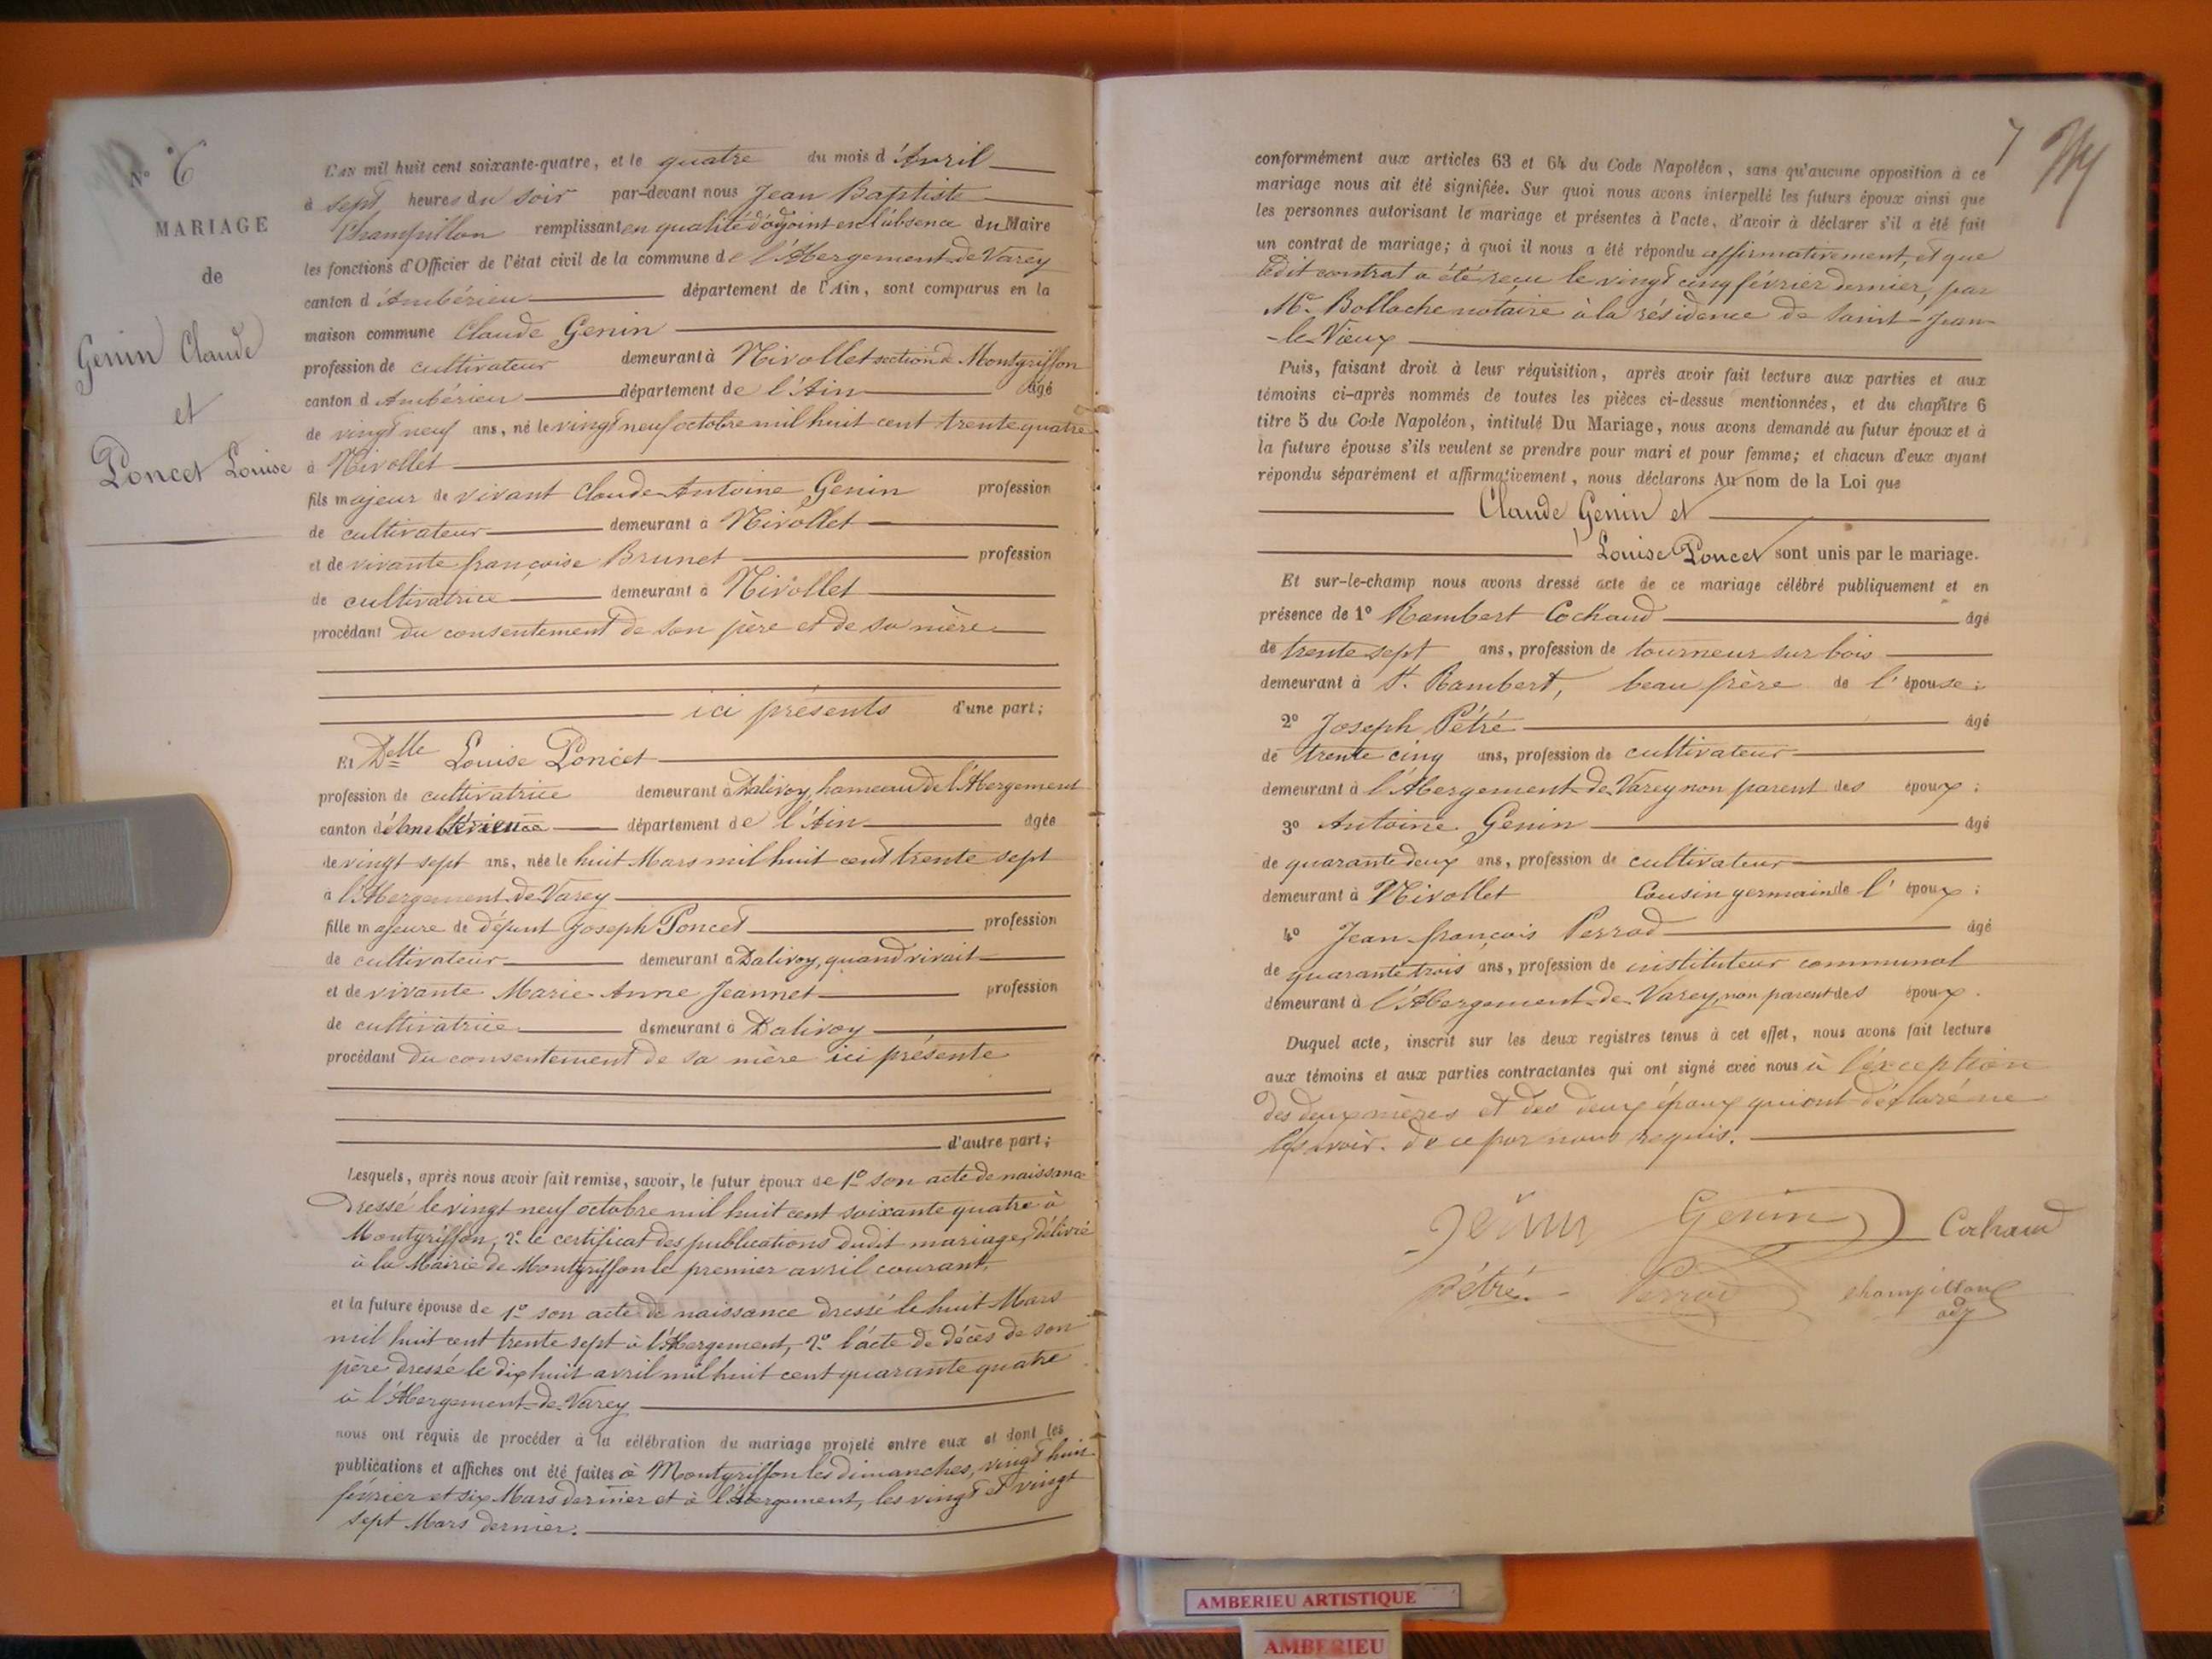 N° 6
MARIAGE
de
Genin Claude
et
Poncet Louise
L'AN mil huit cent soixante-quatre, et le quatre du mois d'Avril
à sept heures du soir par-devant nous Jean Baptiste
Champillon remplissant en qualité d'adjoint en l'absence du Maire
les fonctions d'Officier de l'état civil de la commune de l'Abergement-de-Varey
canton d'Ambérieu département de l'Ain, sont comparus en la
maison commune Claude Genin
profession de cultivateur demeurant à Nivollet section de Montgriffon
canton d'Ambérieu département de l'Ain âgé
de vingt neuf ans, né le vingt neuf octobre mil huit cent trente quatre
à Nivollet
fils majeur de vivant Claude Antoine Genin profession
de cultivateur demeurant à Nivollet
et de vivante françoise Brunet profession
de cultivatrice demeurant à Nivollet
procédant du consentement de son père et de sa mère
ici présents d'une part;
Et Delle Louise Poncet
profession de cultivatrice demeurant à Dalivoy, hameau de l'Abergement
canton d'Ambérieu département de l'Ain âgée
de vingt sept ans, née le huit Mars mil huit cent trente sept
à l'Abergement-de-Varey
fille majeure de défunt Joseph Poncet profession
de cultivateur demeurant à Dalivoy, quand vivait
et de vivante Marie Anne Jeannet profession
de cultivatrice demeurant à Dalivoy
procédant du consentement de sa mère ici présente
d'autre part;
Lesquels, après nous avoir fait remise, savoir, le futur époux de 1° son acte de naissance
Dressé le vingt neuf octobre mil huit cent soixante quatre à
Montgriffon, 2° le certificat des publications dudit mariage, délivré
à la Mairie de Montgriffon le premier avril courant,
et la future épouse de 1° son acte de naissance dressé le huit Mars
mil huit cent trente sept à l'Abergement, 2° l'acte de décès de son
père dressé le dix huit avril mil huit cent quarante quatre
à l'Abergement-de-Varey
nous ont requis de procéder à la célébration du mariage projeté entre eux et dont les
publications et affiches ont été faites à Montgriffon les dimanches, vingt huit
février et six Mars dernier et à l'Abergement, les vingt et vingt
sept Mars dernier.
7
conformément aux articles 63 et 64 du Code Napoléon, sans qu'aucune opposition à ce
mariage nous ait été signifiée. Sur quoi nous avons interpellé les futurs époux ainsi que
les personnes autorisant le mariage et présentes à l'acte, d'avoir à déclarer s'il a été fait
un contrat de mariage; à quoi il nous a été répondu affirmativement, et que
ledit contrat a été reçu le vingt cinq février dernier, par
Me Bollache notaire à la résidence de Saint-Jean-
-le-Vieux
Puis, faisant droit à leur réquisition, après avoir fait lecture aux parties et aux
témoins ci-après nommés de toutes les pièces ci-dessus mentionnées, et du chapître 6
titre 5 du Code Napoléon, intitulé Du Mariage, nous avons demandé au futur époux et à
la future épouse s'ils veulent se prendre pour mari et pour femme; et chacun d'eux ayant
répondu séparément et affirmativement, nous déclarons Au nom de la Loi que
Claude Genin et
Louise Poncet sont unis par le mariage.
Et sur-le-champ nous avons dressé acte de ce mariage célébré publiquement et en
présence de 1° Rambert Cochaud âgé
de trente sept ans, profession de tourneur sur bois
demeurant à St. Rambert, beau frère de l'épouse;
2° Joseph Pétré âgé
de trente cinq ans, profession de cultivateur
demeurant à l'Abergement-de-Varey non parent des époux;
3° Antoine Genin âgé
de quarante deux ans, profession de cultivateur
demeurant à Nivollet Cousin germain de l'époux;
4° Jean françois Perrod âgé
de quarante trois ans, profession de instituteur communal
demeurant à l'Abergement-de-Varey, non parent des époux.
Duquel acte, inscrit sur les deux registres tenus à cet effet, nous avons fait lecture
aux témoins et aux parties contractantes qui ont signé avec nous à l'exception
des deux mères et des deux époux qui ont déclaré ne
le savoir. de ce par nous requis.
Jénin Genin Cochaud
Pétré Perrod Champillon
adj
AMBERIEU ARTISTIQUE
AMBERIEU